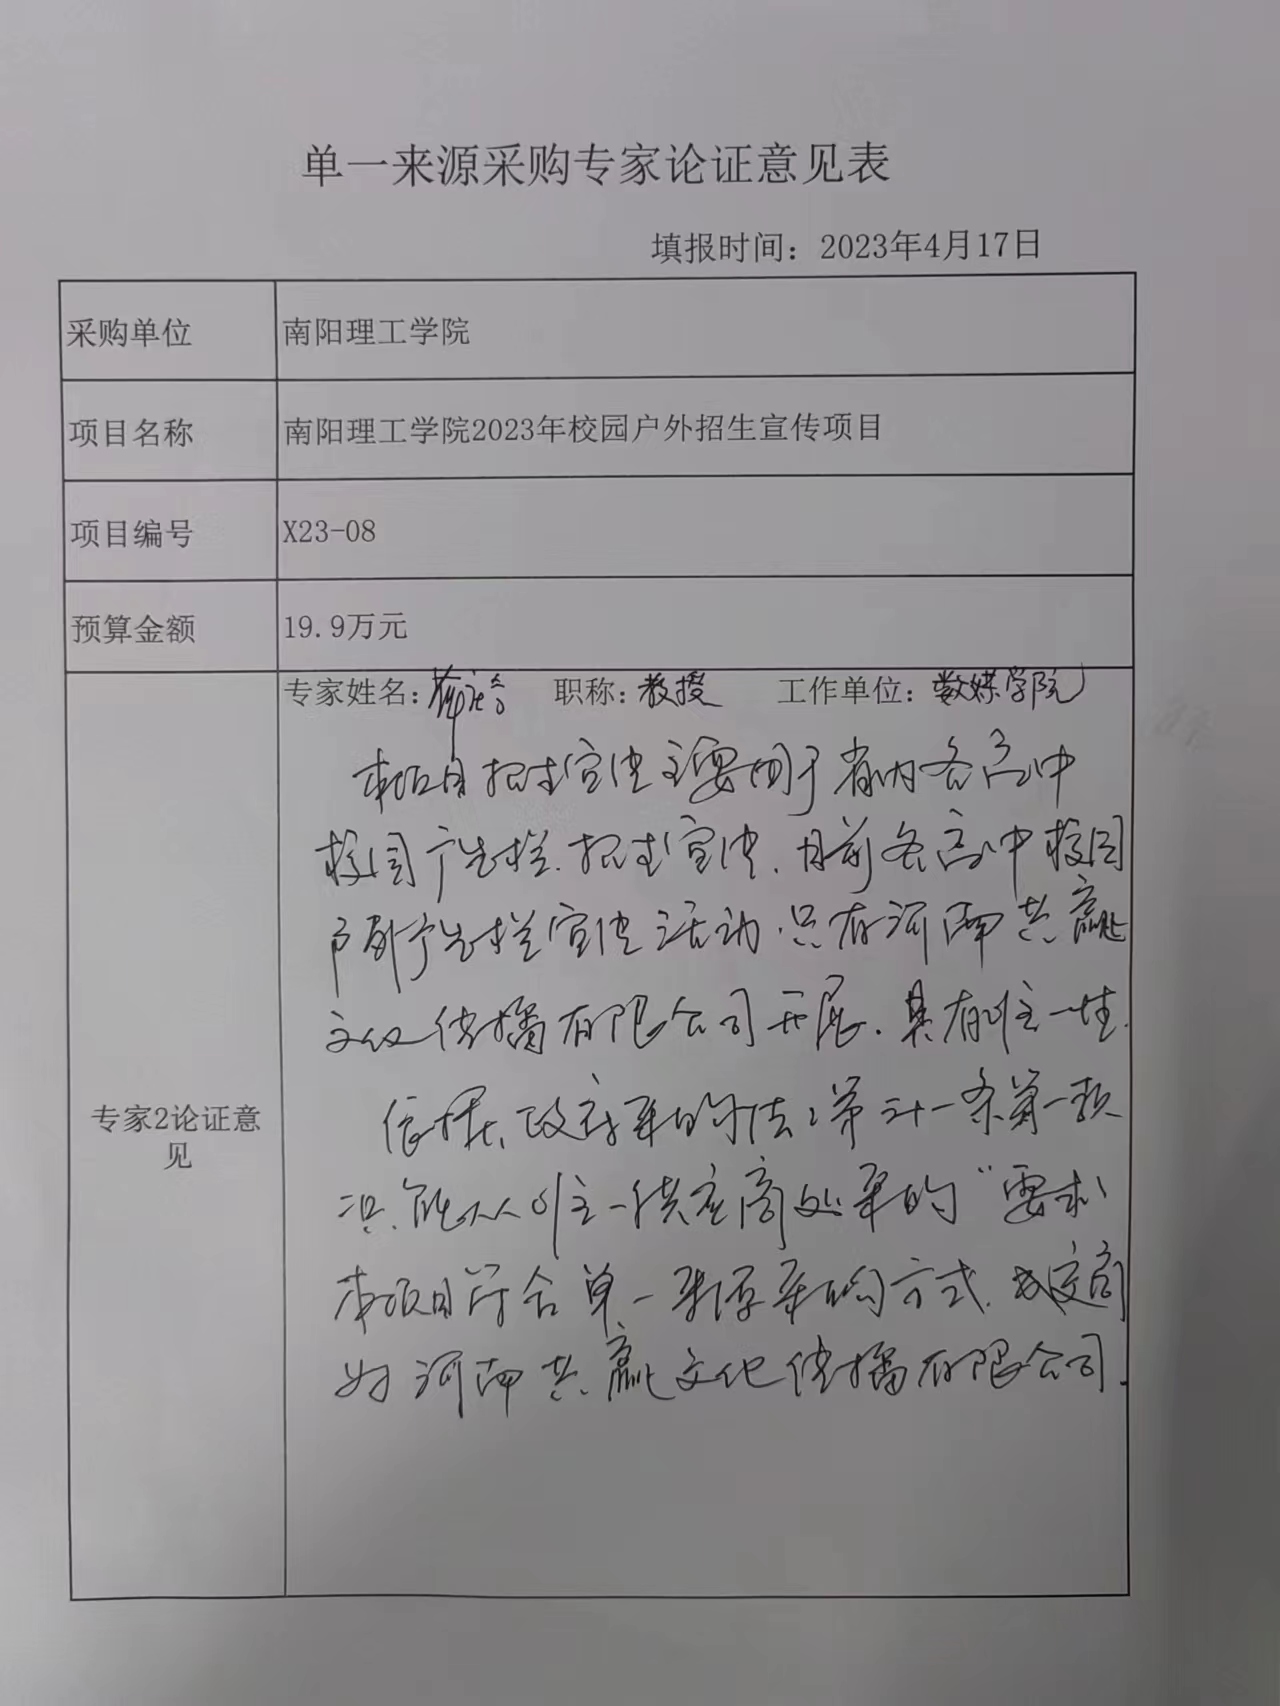 单一来源采购专家论证意见表
填报时间：2023年4月17日
采购单位 南阳理工学院
项目名称 南阳理工学院2023年校园户外招生宣传项目
项目编号 X23-08
预算金额 19.9万元
专家2论证意见
专家姓名： 职称：教授 工作单位：数媒学院
本项目招生宣传主要用于省内各高中
校园广告栏.招生宣传.目前各高中校园
广告栏宣传活动.只有河南共赢
文化传播有限公司开展.具有唯一性.
依据、政府采购法：第三十一条第一款
只能从唯一供应商处采购"要求
本项目符合单一来源采购方式.供应商
为河南共赢文化传播有限公司.